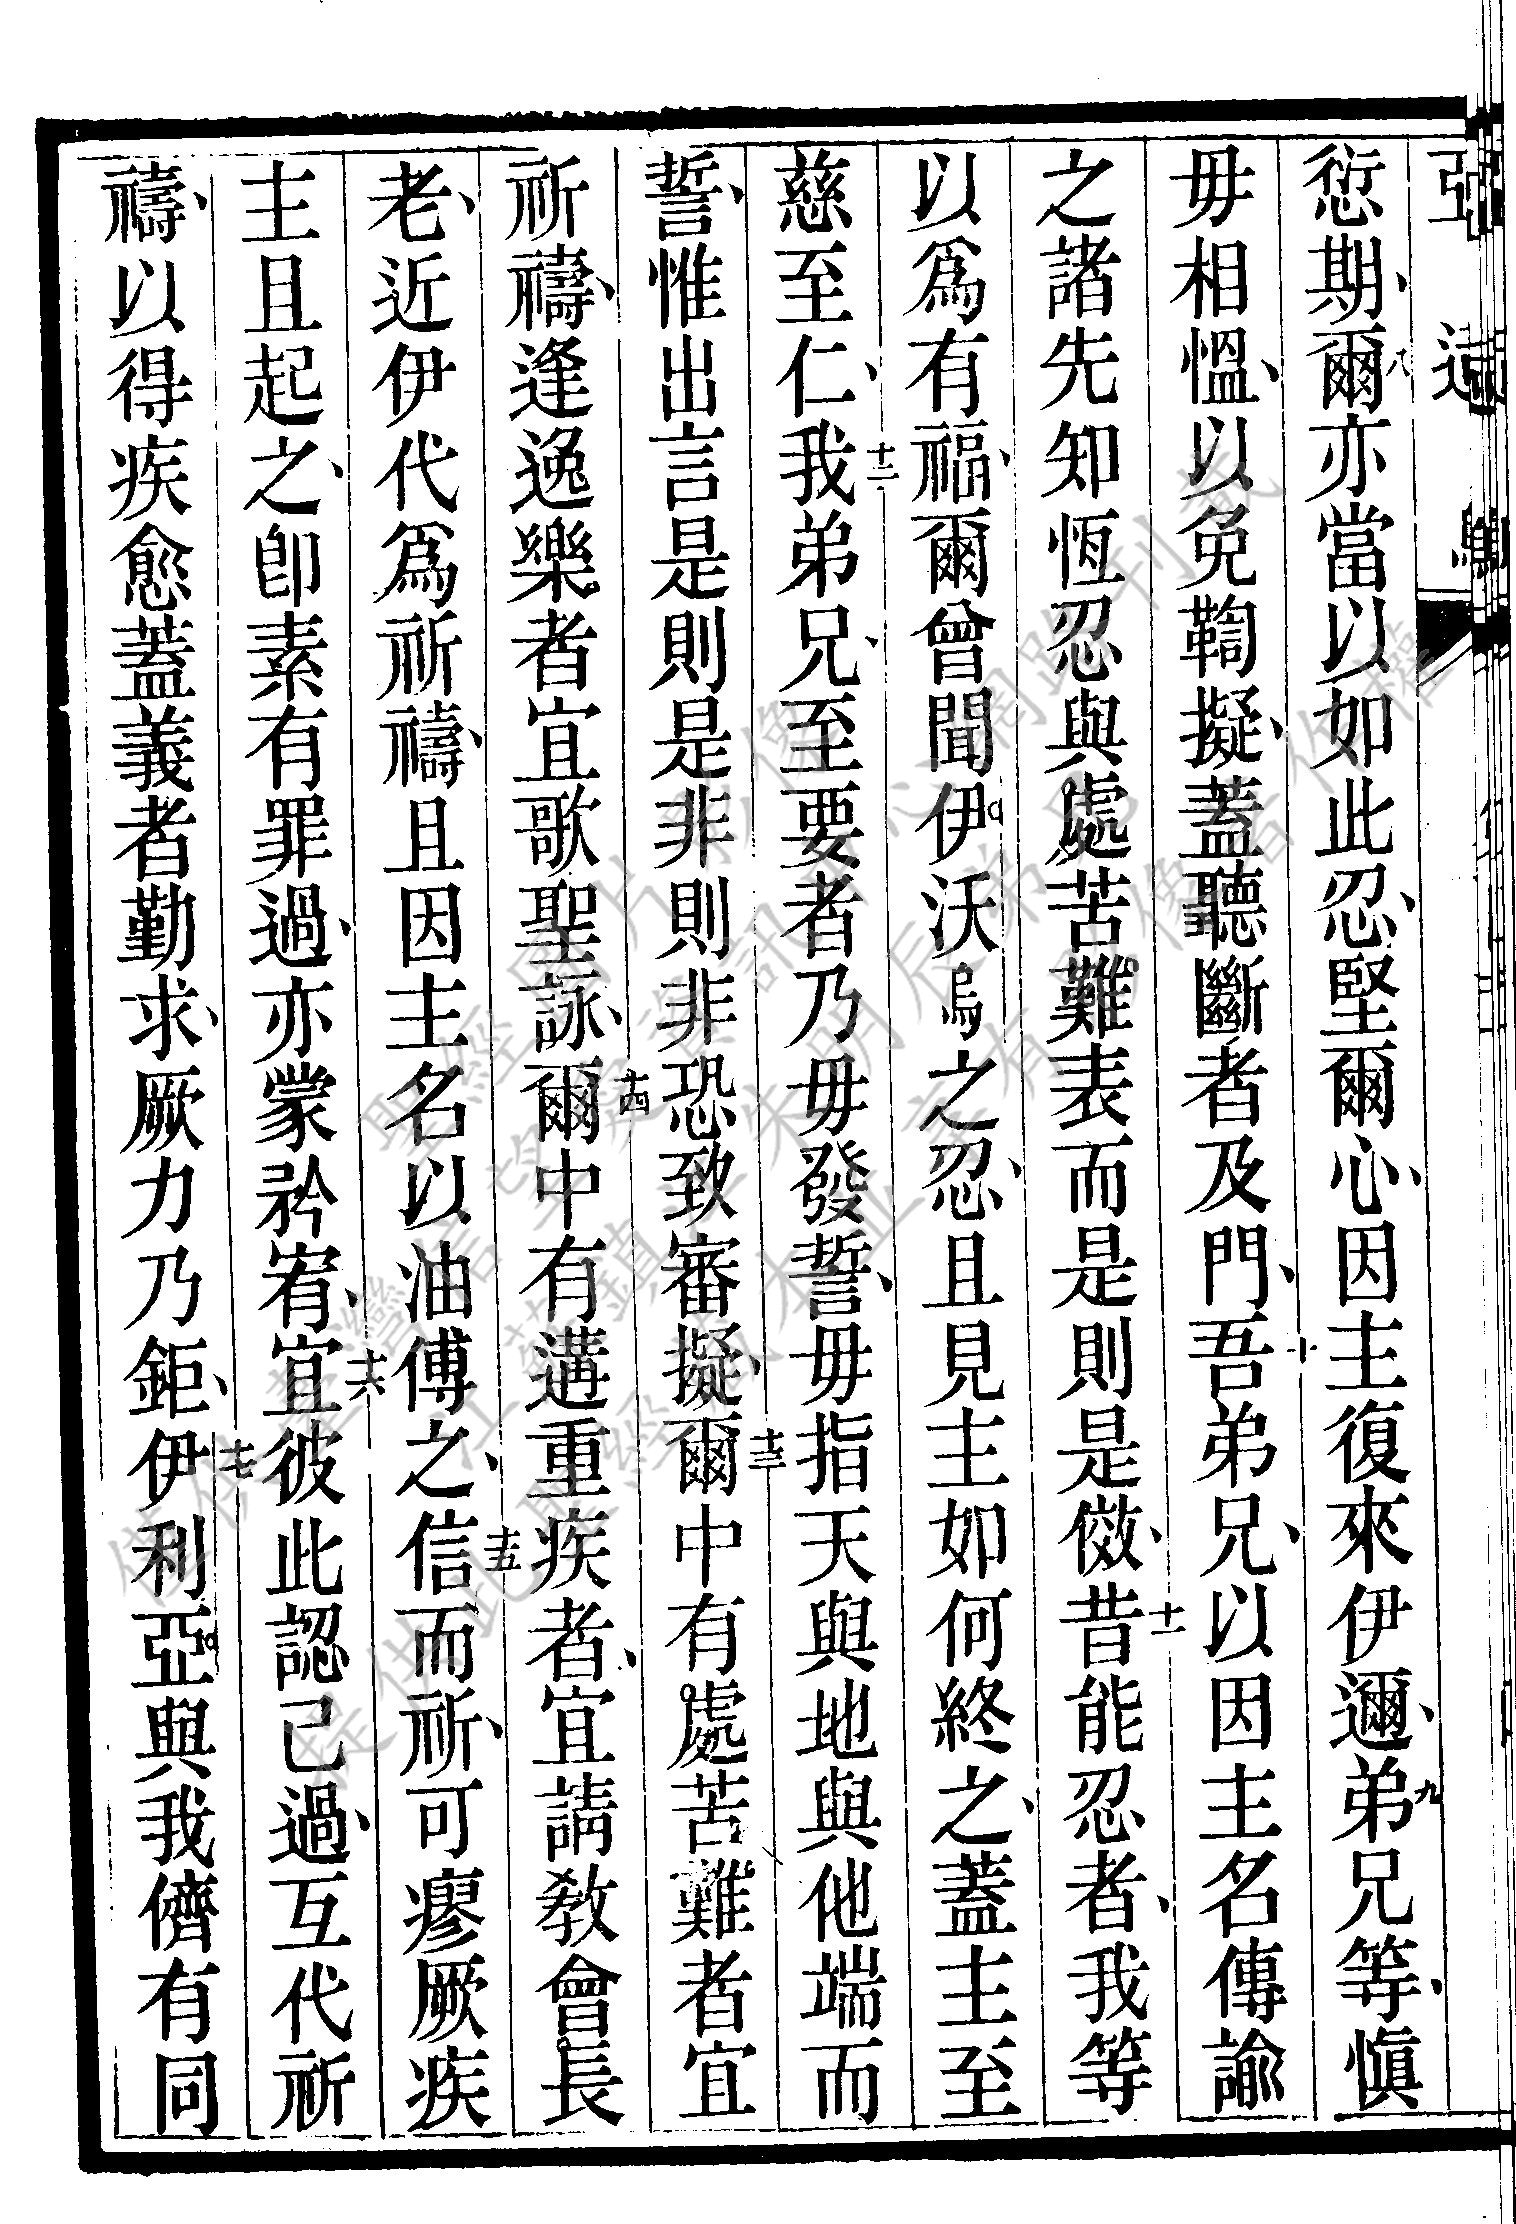 愆期、八爾亦當以如此忍、堅爾心、因主復來伊邇、九弟兄等、愼
毋相慍、以免鞫擬、蓋聽斷者及門、十吾弟兄、以因主名傳諭
之諸先知恆忍與處苦難表而是則是傚、十一昔能忍者、我等
以爲有福、爾曾聞伊沃烏之忍、且見主如何終之、蓋主至
慈至仁、十二我弟兄、至要者乃毋發誓、毋指天與地與他端而
誓、惟出言是則是非則非恐致審擬、十三爾中有處苦難者宜
祈禱、逢逸樂者宜歌聖詠、十四爾中有遘重疾者、宜請教會長
老、近伊代爲祈禱、且因主名以油傅之、十五信而祈、可瘳厥疾
主且起之、卽素有罪過、亦蒙矜宥、十六宜彼此認己過、互代祈
禱、以得疾愈蓋義者勤求、厥力乃鉅、十七伊利亞與我儕有同